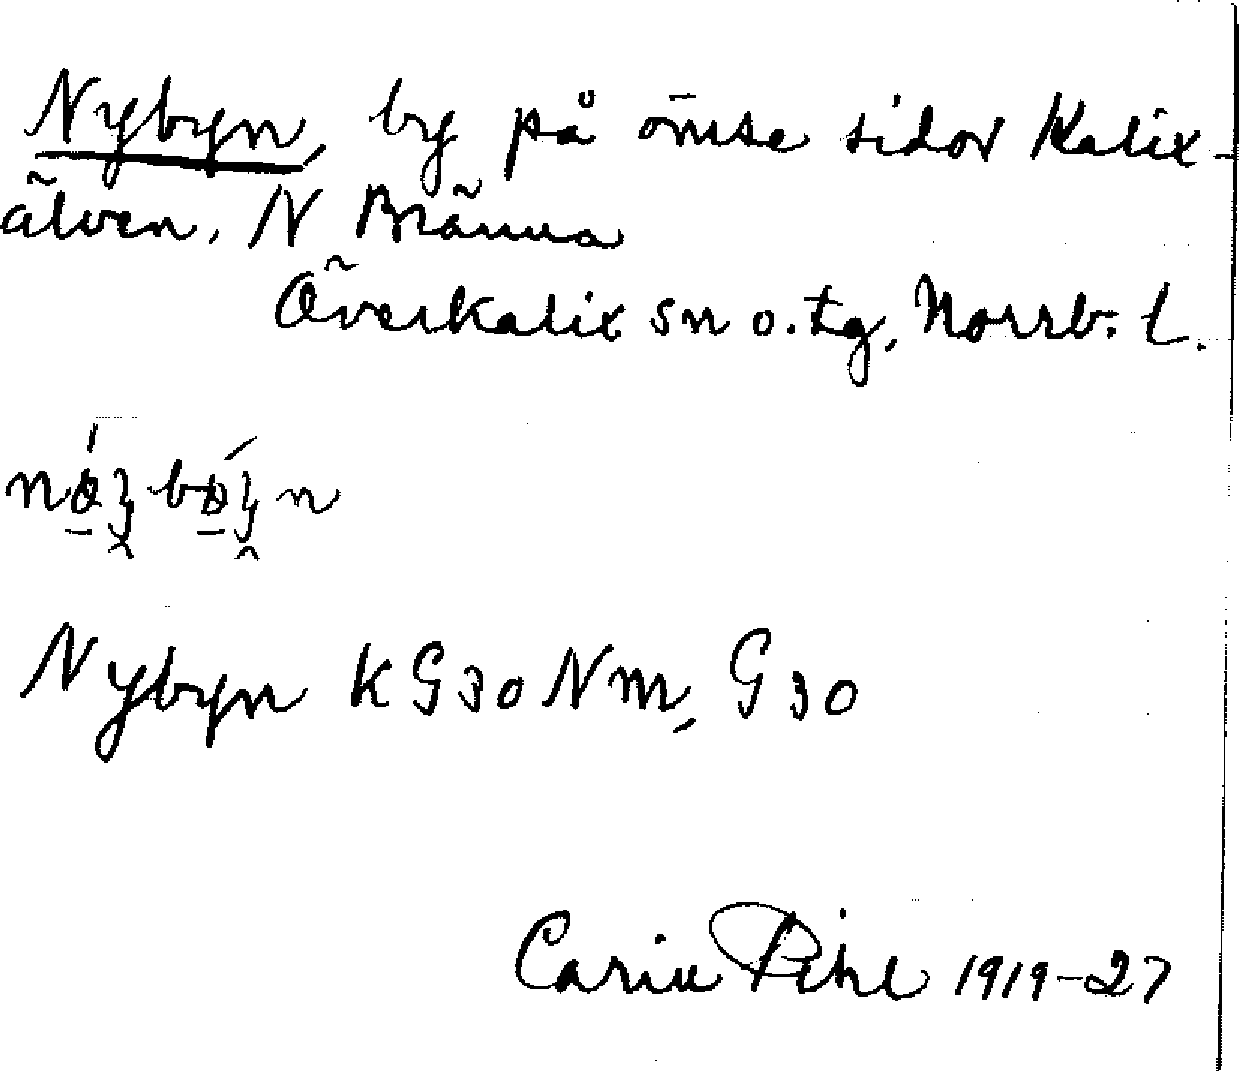 Nybyn, by på ömse sidor Kalix-
älven. N Bränna
Överkalix sn o. tg, Norrb. L.
Nybyn K G30 Nm, G30
Carin Pihl 1919-27